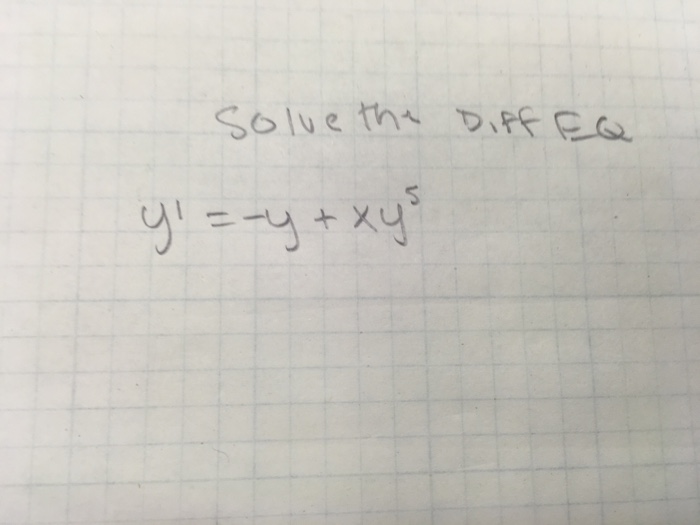 Solve the Diff EQ
y' = -y + xy⁵